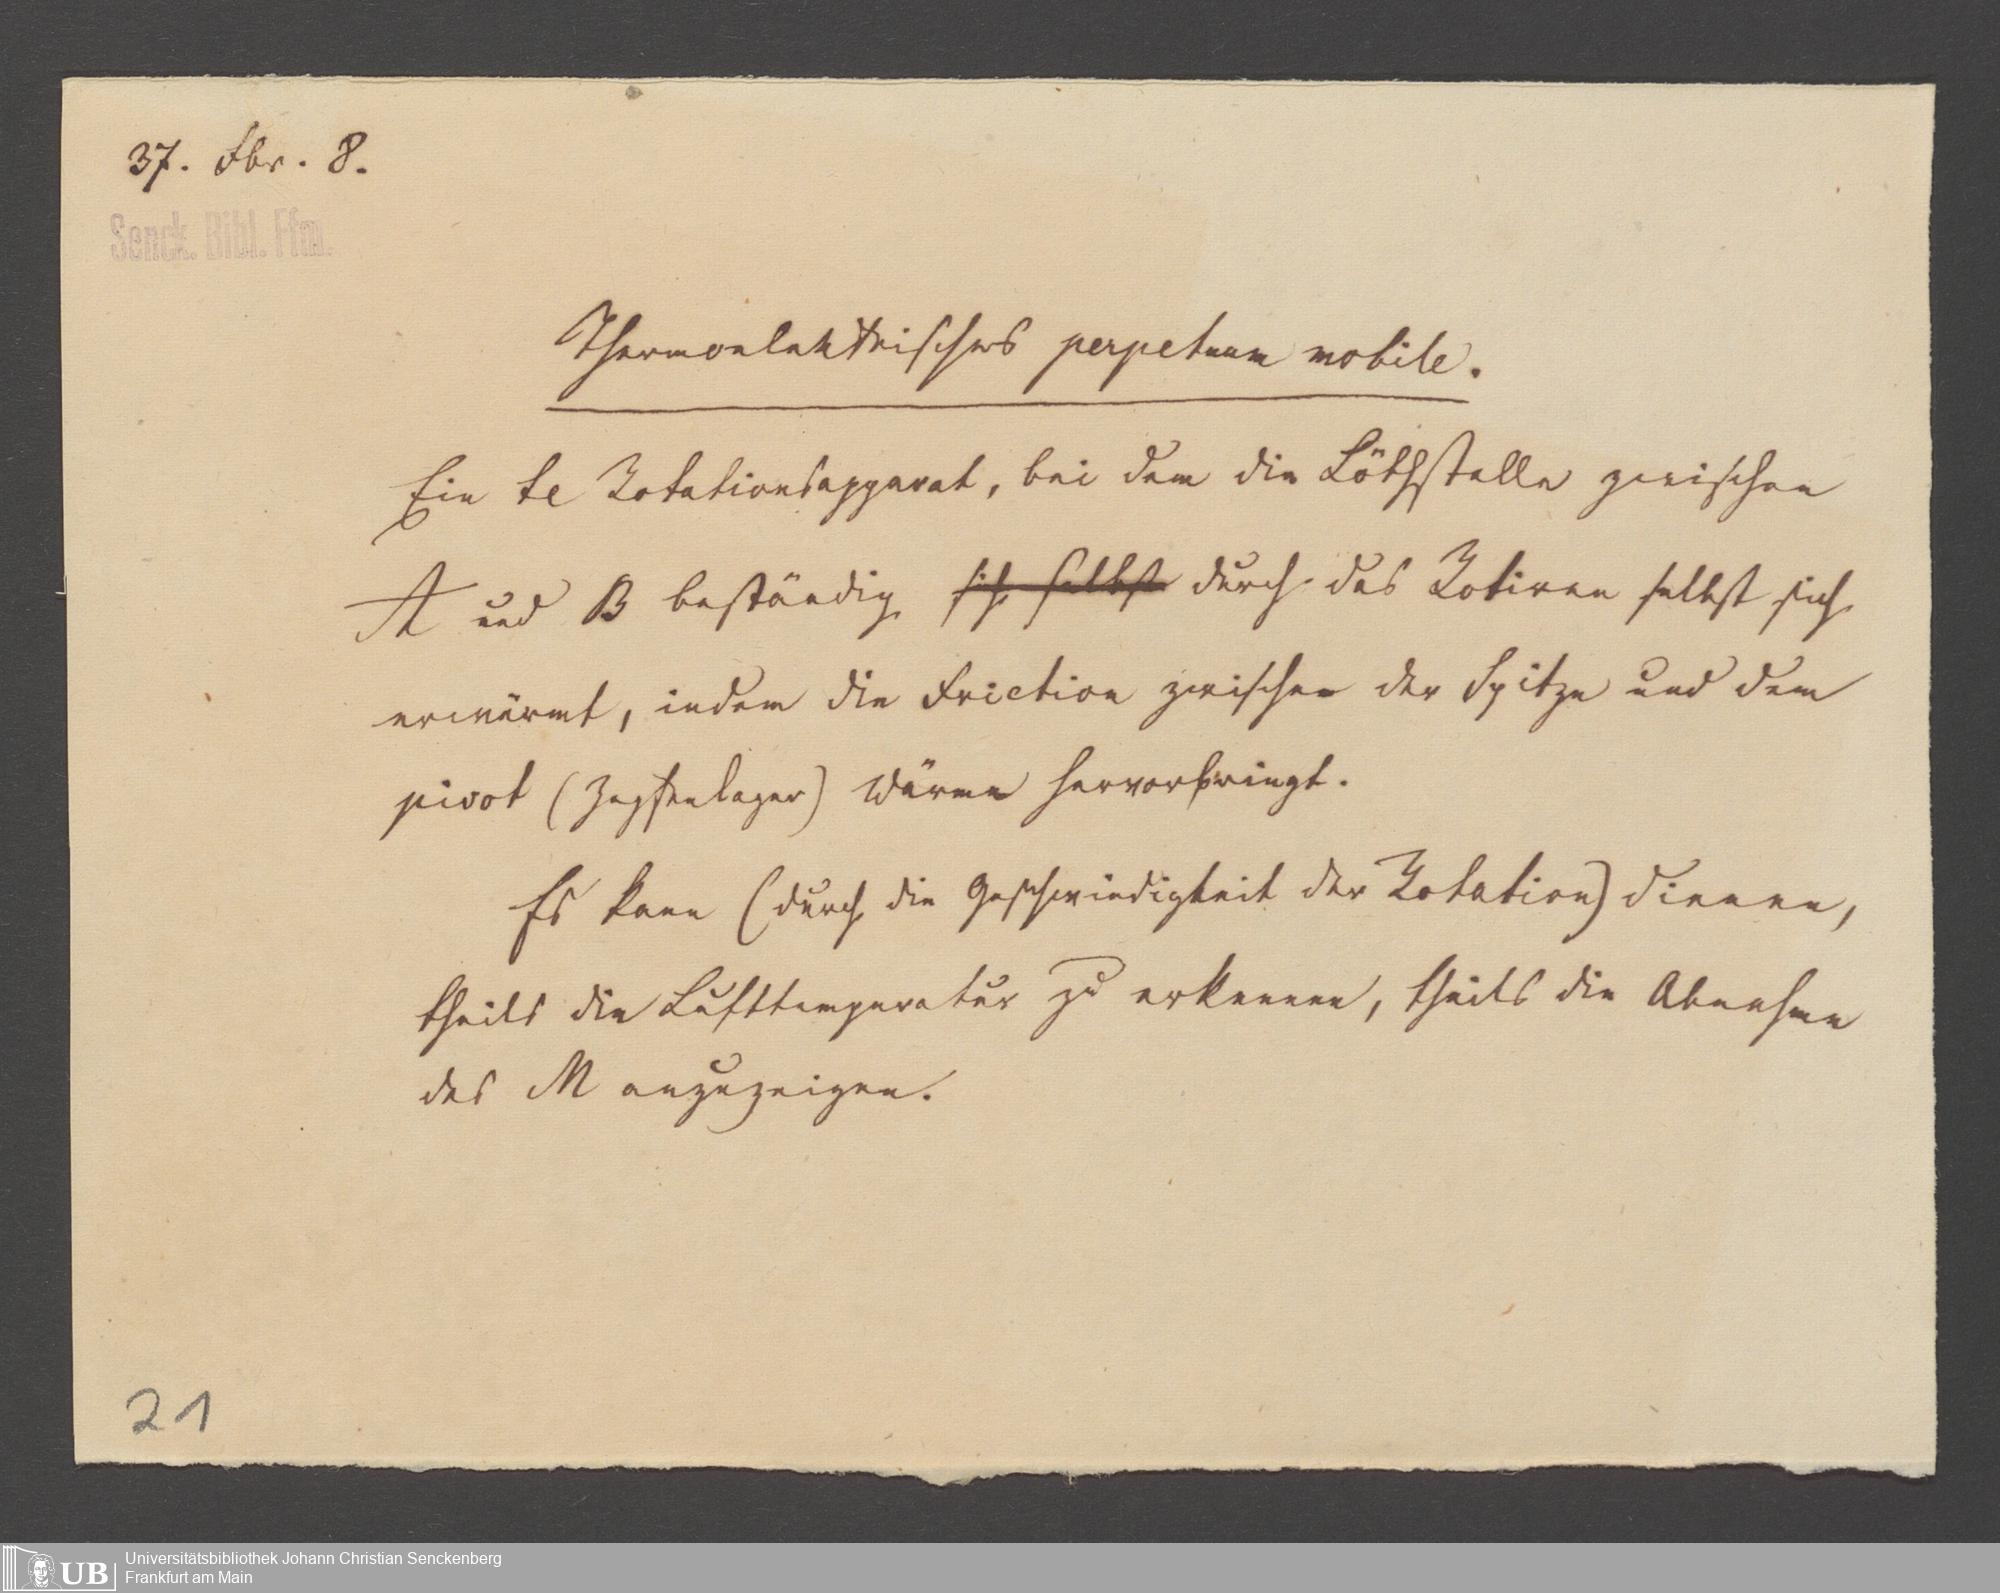 37. Fbr. 8.
Senck. Bibl. Ffm.
Thermoelektrisches perpetuum mobile.
Ein te Rotationsapparat, bei dem die Löthstelle zwischen
A und B beständig sich selbst durch das Rotiren selbst sich
erwärmt, indem die Friction zwischen der Spitze und dem
pivot (Zapfenlager) Wärme hervorbringt.
Es kann (durch die Geschwindigkeit der Rotation) dienen,
theils die Lufttemperatur zu erkennen, theils die Abnahme
des M anzuzeigen.
21
UB Universitätsbibliothek Johann Christian Senckenberg
Frankfurt am Main